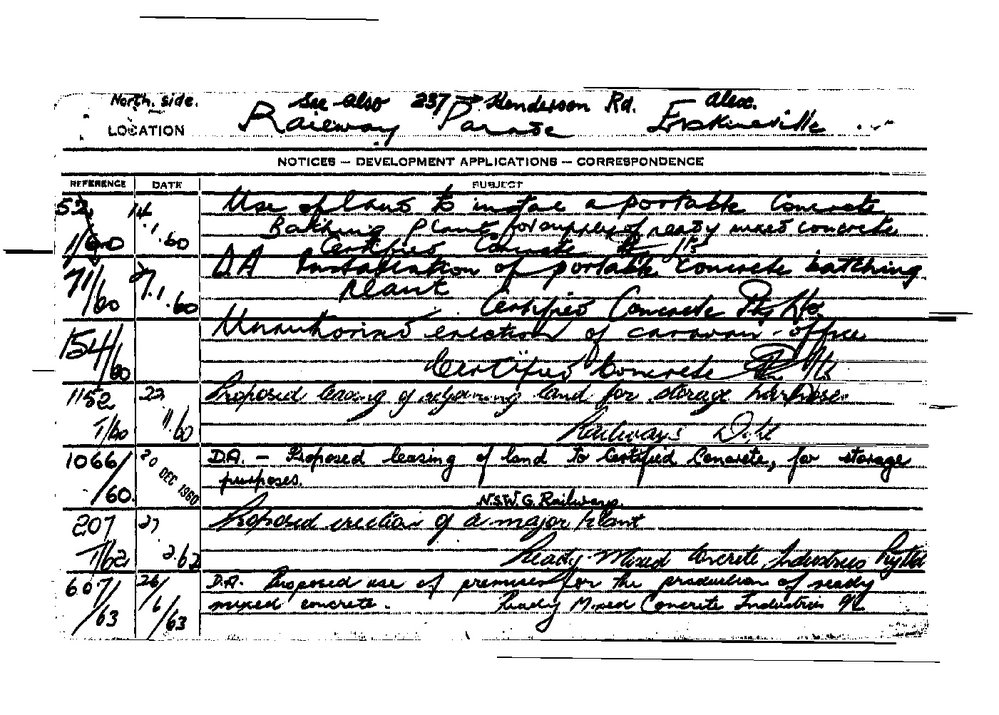 North. side. See also 237 → Henderson Rd. Alex.
LOCATION Railway Parade Erskineville
NOTICES – DEVELOPMENT APPLICATIONS – CORRESPONDENCE
REFERENCE DATE SUBJECT
52 14. Use of land to install a portable concrete
1/60 1.60 Batching Plant for supply of ready mixed concrete
Certified Concrete
71/60 27.1.60 DA Installation of portable concrete batching
plant
Certified Concrete Pty Ltd
154/60 Unauthorised erection of caravan-office
Certified Concrete
1152 22 Proposed leasing of adjoining land for storage purposes
T/60 11.60 Railways Dept
1066/ 20 DEC 1960 D.A. – Proposed leasing of land to Certified Concrete, for storage
/60. purposes.
N.S.W.G. Railways
207 27 Proposed erection of a major plant
T/62 2.62 Ready-Mixed Concrete Industries Pty Ltd
607/ 26/ D.A. Proposed use of premises for the production of ready
/63 6/63 mixed concrete. Ready Mixed Concrete Industries